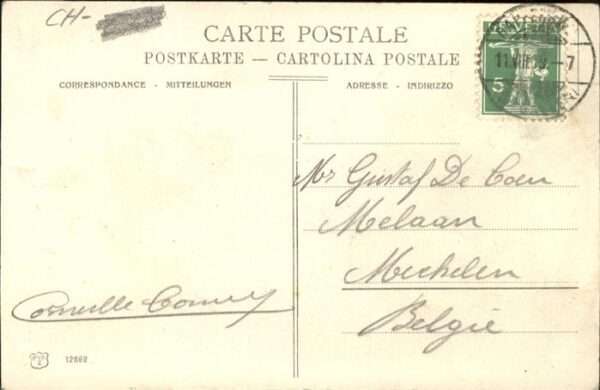 CH-
CARTE POSTALE
POSTKARTE — CARTOLINA POSTALE
CORRESPONDANCE - MITTEILUNGEN
ADRESSE - INDIRIZZO
HELVETIA
5
Mr Gustaf De Coen
Melaan
Mechelen
België
12662